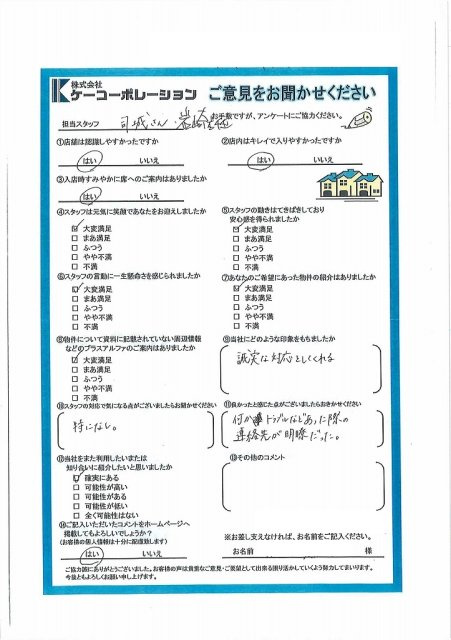 株式会社
ケーコーポレーション ご意見をお聞かせください
お手数ですが、アンケートにご協力ください。
担当スタッフ 司城さん・岩崎
①店舗は認識しやすかったですか
はい いいえ
②店内はキレイで入りやすかったですか
はい いいえ
③入店時すみやかに席へのご案内はありましたか
はい いいえ
④スタッフは元気に笑顔であなたをお迎えしましたか
☑ 大変満足
□ まあ満足
□ ふつう
□ やや不満
□ 不満
⑤スタッフの動きはてきぱきしており
安心感を得られましたか
☑ 大変満足
□ まあ満足
□ ふつう
□ やや不満
□ 不満
⑥スタッフの言動に一生懸命さを感じられましたか
☑ 大変満足
□ まあ満足
□ ふつう
□ やや不満
□ 不満
⑦あなたのご希望にあった物件の紹介はありましたか
☑ 大変満足
□ まあ満足
□ ふつう
□ やや不満
□ 不満
⑧物件について資料に記載されていない周辺情報
などのプラスアルファのご案内はありましたか
☑ 大変満足
□ まあ満足
□ ふつう
□ やや不満
□ 不満
⑨当社にどのような印象をもちましたか
誠実な対応をしてくれる
⑩スタッフの対応で気になる点がございましたらお聞かせください
特になし。
⑪良かったと感じた点がございましたらおきかせください
何かトラブルなどあった際の
連絡先が明瞭だった。
⑫当社をまた利用したいまたは
知り合いに紹介したいと思いましたか
☑ 確実にある
□ 可能性が高い
□ 可能性がある
□ 可能性が低い
□ 全く可能性はない
⑬その他のコメント
⑭ご記入いただいたコメントをホームページへ
掲載してもよろしいでしょうか?
(お客様の個人情報は十分に配慮致します)
はい いいえ
※お差し支えなければ、お名前をご記入ください。
お名前 様
ご協力誠にありがとうございました。お客様の声は貴重なご意見・ご要望として出来る限り活かしていくよう努力してまいります。
今後ともよろしくお願い申し上げます。